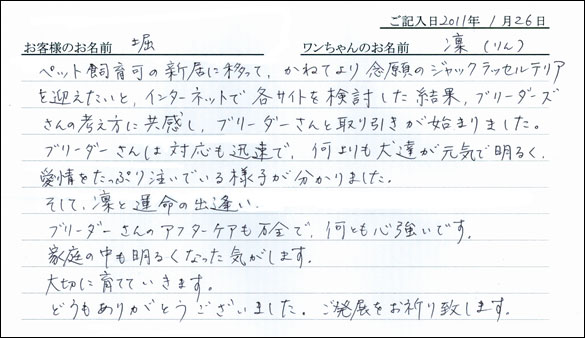 ご記入日2011年 1月26日
お客様のお名前 堀 ワンちゃんのお名前 凜(りん)
ペット飼育可の新居に移って、かねてより念願のジャックラッセルテリア
を迎えたいと、インターネットで各サイトを検討した結果、ブリーダーズ
さんの考え方に共感し、ブリーダーさんと取り引きが始まりました。
ブリーダーさんは対応も迅速で、何よりも犬達が元気で明るく、
愛情をたっぷり注いでいる様子が分かりました。
そして、凜と運命の出逢い、
ブリーダーさんのアフターケアも万全で、何とも心強いです。
家庭の中も明るくなった気がします。
大切に育てていきます。
どうもありがとうございました。ご発展をお祈り致します。